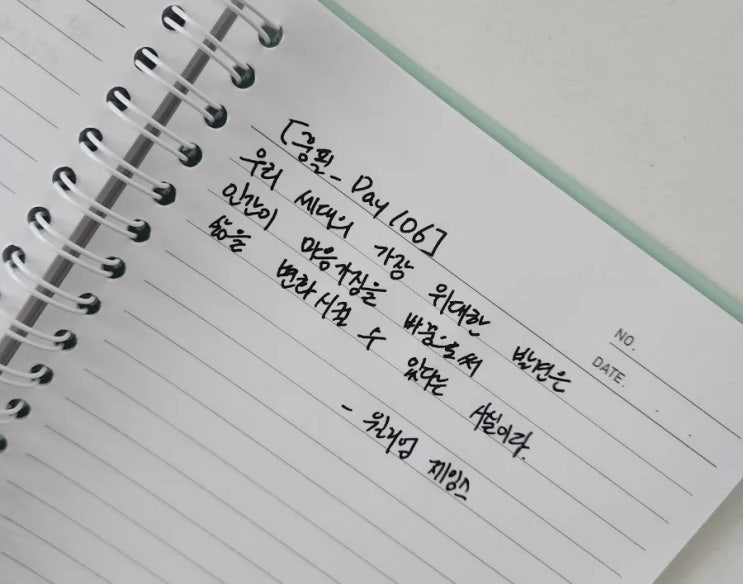 [콩필_Day 106]
우리 세대의 가장 위대한 발견은
인간이 마음가짐을 바꿈으로써
삶을 변화시킬 수 있다는 사실이다.
- 윌리엄 제임스
NO.
DATE. . .